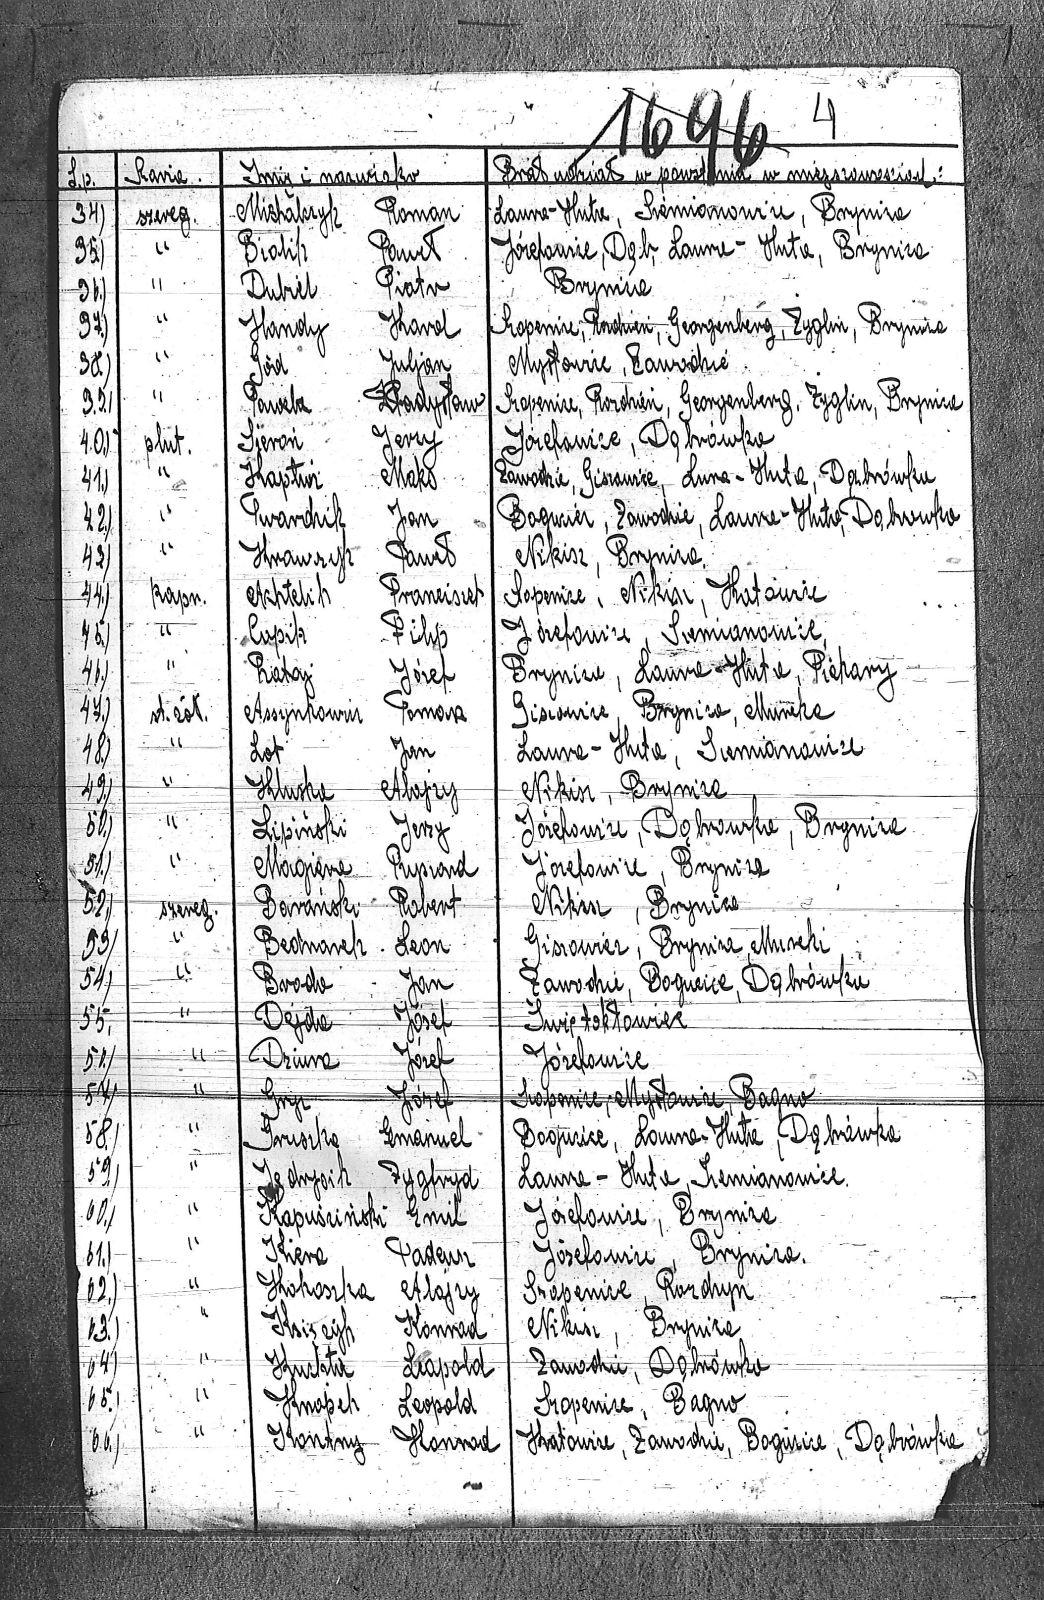 1696 4
L.p. Szarża. Imię i nazwisko Brał udział w powstaniu w miejscowościach:
34) szereg. Michalczyk Roman Laura-Huta, Siemianowice, Brynica
35) " Bialik Paweł Józefowice, Dąb, Laura-Huta, Brynica
36) " Dubiel Piotr Brynica
37) " Handy Karol Szopenice, Rozdzień, Georgenberg, Żyglin, Brynica
38) " Gód Juljan Mysłowice, Zawodzie
39) " Pawela Władysław Szopenice, Rozdzień, Georgenberg, Żyglin, Brynica
40) plut. Sieroń Jerzy Józefowice, Dąbrówka
41) " Maks Zawodzie, Giszowice, Lura-Huta, Dąbrówka
42) " Twardzik Jan Bogucice, Zawodzie, Laura-Huta, Dąbrowka
43) " Krawczyk Paweł Nikisz, Brynica.
44) kapr. Achtelik Franciszek Szopenice, Nikisz, Katowice
45) " Cupik Filip Józefowice, Siemianowice,
46) " Rataj Józef Brynica, Laura-Huta, Piekary
47) st. Tomasz Giszowice, Brynica, Murcka
48) " Lot Jan Laura-Huta, Siemianowice
49) " Kluska Alojzy Nikisz, Brynica
50) " Lipiński Jerzy Józefowice, Dąbrowka, Brynica
51) " Magiera Ryszard Józefowice, Brynica
52) szereg. Barański Robert Nikisz, Brynica
53) " Bednarek Leon Giszowiec, Brynica, Murcki
54) " Broda Jan Zawodzie, Bogucice, Dąbrówka
55. " Dejda Józef Święto
56) " Dziura Józef Józefowice
57) " Gryc Józef Szopenice, Mysłowice, Bagno
58.) " Gruszka Emanuel Bogucice, Laura-Huta, Dąbrówka
59) " Jędrysik Zygfryd Laura-Huta, Siemianowice.
60.) " Kapuściński Emil Józefowice, Brynica
61.) " Kiera Tadeusz Józefowice, Brynica.
62.) " Kokoszka Alojzy Szopenice, Rozdzyń
63.) " Konrad Nikisz, Brynica
64) " Leopold Zawodzie, Dąbrówka
65.) " Knopek Leopold Szopenice, Bagno
66.) " Kontny Konrad Katowice, Zawodzie, Bogucice, Dąbrówka